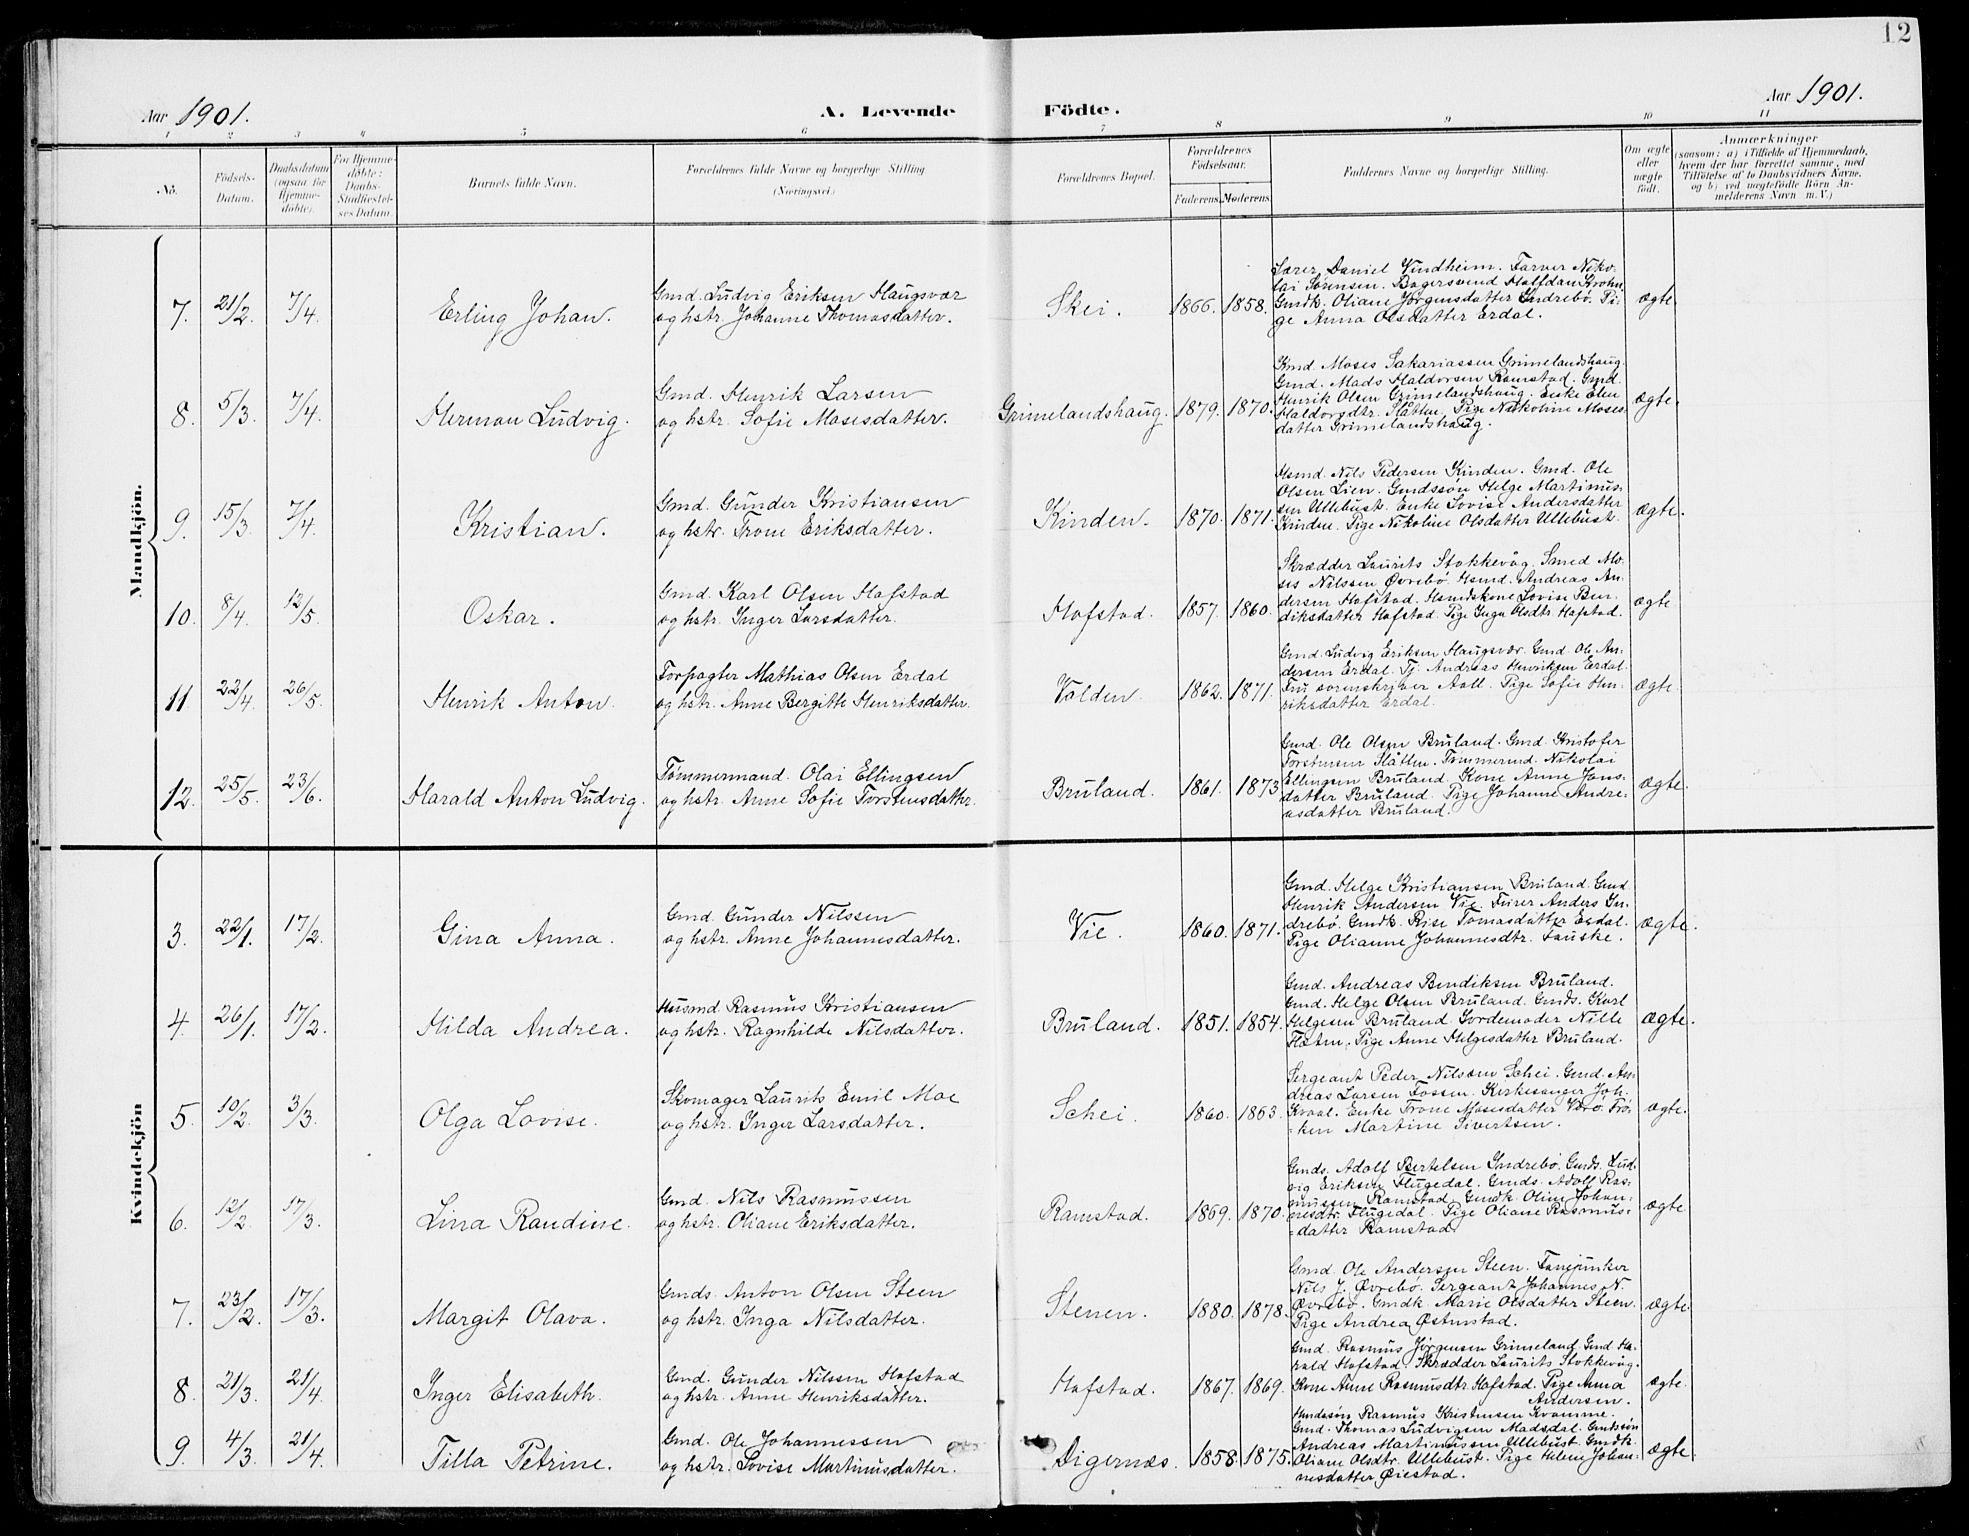 12
Aar 1901.
A. Levende Födte.
Aar 1901.
1 2 3 4 5 6 7 8 9 10 11
No.
Födsels-
Datum.
Daabsdatum
(ogsaa for
Hjemme-
döbte).
For Hjemme-
döbte:
Daabs-
Stadfæstel-
ses Datum.
Barnets fulde Navn.
Forældrenes fulde Navne og borgerlige Stilling
(Næringsvei.)
Forældrenes Bopæl.
Forældrenes
Födselsaar.
Faderens. Moderens.
Faddernes Navne og borgerlige Stilling.
Om ægte
eller
uægte
födt.
Anmærkninger
(saasom: a) i Tilfælde af Hjemmedaab,
hvem der har forrettet samme, med
Tilföielse af to Daabsvidners Navne,
og b) ved uægtefödte Börn An-
melderens Navn m. V.)
Mandkjön.
7. 21/2 7/4. Erling Johan.
Gmd. Ludvig Eriksen Haugsvær
og hstr. Johanne Thomasdatter.
Skei. 1866. 1858.
Lærer Daniel Vindheim. Farver Niko-
lai Sørensen. Bagersvend Halfdan Krohn
Gmdk. Oliane Jørgensdatter Indrebø. Pi-
ge Anna Olsdatter Erdal.
ægte
8. 5/3. 7/4. Herman Ludvig.
Gmd. Henrik Larsen
og hstr. Sofie Mosesdatter.
Grimelandshaug. 1879. 1870.
Kmd. Moses Sakariassen Grimelandshaug
Gmd. Mads Haldorsen Ramstad. Gmd.
Henrik Olsen Grimelandshaug. Enke Elen
Haldorsdtr. Slåtten. Pige Nikoline Moses-
datter Grimelandshaug.
ægte.
9. 15/3. 7/4. Kristian.
Gmd. Gunder Kristiansen
og hstr. Trone Eriksdatter.
Kinden. 1870. 1871.
Hsmd. Nils Pedersen Kinden. Gmd. Ole
Olsen Lien. Gmdssøn Helge Martinus-
sen Ullebust. Enke Lovise Andersdatter
Kinden. Pige Nikoline Olsdatter Ullebust.
ægte.
10. 8/4. 12/5. Oskar.
Gmd. Karl Olsen Hafstad
og hstr. Inger Larsdatter.
Hafstad. 1857. 1860.
Skrædder Laurits Stokkevåg. Smed Mo-
ses Nilssen Øvrebø. Hsmd. Andreas An-
dersen Hafstad. Hsmdskone Lovise Ben-
diksdatter Hafstad. Pige Inga Olsdtr Hafstad.
ægte
11 22/4. 26/5. Henrik Anton.
Forpagter Mathias Olsen Erdal
og hstr. Anne Bergitte Henriksdatter.
Volden. 1862. 1871.
Gmd. Ludvig Eriksen Haugsvær. Gmd. Ole An-
dersen Erdal. Tj. Andreas Henriksen Erdal.
Fru sorenskriver Aall. Pige Sofie Hen-
riksdatter Erdal.
ægte.
12. 25/5. 23/6. Harald Anton Ludvig.
Tømmermand. Olai Ellingsen
og hstr. Anne Sofie Torstensdatter.
Bruland. 1861. 1873
Gmd. Ole Olsen Bruland. Gmd. Kristofer
Torstensen Slåtten. Tømmermd. Nikolai
Ellingsen Bruland. Kone Anne Jens-
datter Bruland. Pige Johanne Andre-
asdatter Bruland.
ægte.
Kvindekjön
3. 22/1. 17/2. Gina Anna.
Gmd. Gunder Nilssen
og hstr. Anne Johannesdatter.
Vie. 1860. 1871.
Gmd. Helge Kristiansen Bruland. Gmd
Henrik Andersen Vie. Furer Anders In-
drebø. Gmdk. Rise Tomasdatter Erdal.
Pige Olianne Johannesdtr. Fauske.
ægte.
4. 26/1. 17/2. Hilda Andrea.
Husmd Rasmus Kristiansen
og hstr. Ragnhilde Nilsdatter.
Bruland. 1851. 1854.
Gmd. Andreas Bendiksen Bruland.
Gmd. Helge Olsen Bruland. Gmds. Karl
Helgesen Bruland. Jordemoder Nille
Flaten. Pige Anne Helgesdatter Bruland.
ægte.
5. 10/2. 3/3. Olga Lovise.
Skomager Laurits Emil Moe
og hstr. Inger Larsdatter.
Schei. 1860. 1863.
Sergeant Peder Nilssen Schei. Gmd. An-
dreas Larsen Fossen. Kirkesanger Joh.
Kvaal. Enke Trone Mosesdatter Værø. Frø-
ken Martine Sivertsen.
ægte.
6. 12/2. 17/3. Lina Raudine.
Gmd. Nils Rasmussen
og hstr. Oliane Eriksdatter.
Ramstad. 1869. 1870.
Gmds. Adolf Bertelsen Indrebø. Gmds. Lud-
vig Eriksen Flugedal. Gmds. Adolf Ras-
mussen Ramstad. Gmdk. Oline Johan-
nesdtr. Flugedal. Pige Oliane Rasmus-
datter Ramstad.
ægte
7. 23/2. 17/3. Margit Olava.
Gmds. Anton Olsen Steen
og hstr. Inga Nilsdatter.
Stenen. 1880. 1878.
Gmd. Ole Andersen Steen. Fanejunker
Nils J. Øvrebø. Sergeant Johannes N.
Øvrebø. Gmdk. Marie Olsdatter Steen.
Pige Andrea Østenstad.
ægte
8. 21/3. 21/4 Inger Elisabeth.
Gmd. Gunder Nilssen Hafstad
og hstr. Anne Henriksdatter.
Hafstad. 1867. 1869.
Gmd. Rasmus Jørgensen Grimeland. Gmd. Ha-
rald Hafstad. Skrædder Laurits Stokkevåg.
Kone Anne Rasmusdtr. Hafstad. Pige Anna
Andersen.
ægte.
9. 4/3. 21/4. Tilla Petrine.
Gmd. Ole Johannessen
og hstr. Lovise Martinusdatter.
Digernæs. 1858. 1875.
Kristensen Kvamme.
Gmd. Thomas Ludvigsen Madsdal. Gmdssøn
Andreas Martinussen Ullebust. Gmdk.
Oliane Olsdtr. Ullebust. Pige Helene Johan-
nesdatter Øiestad.
ægte